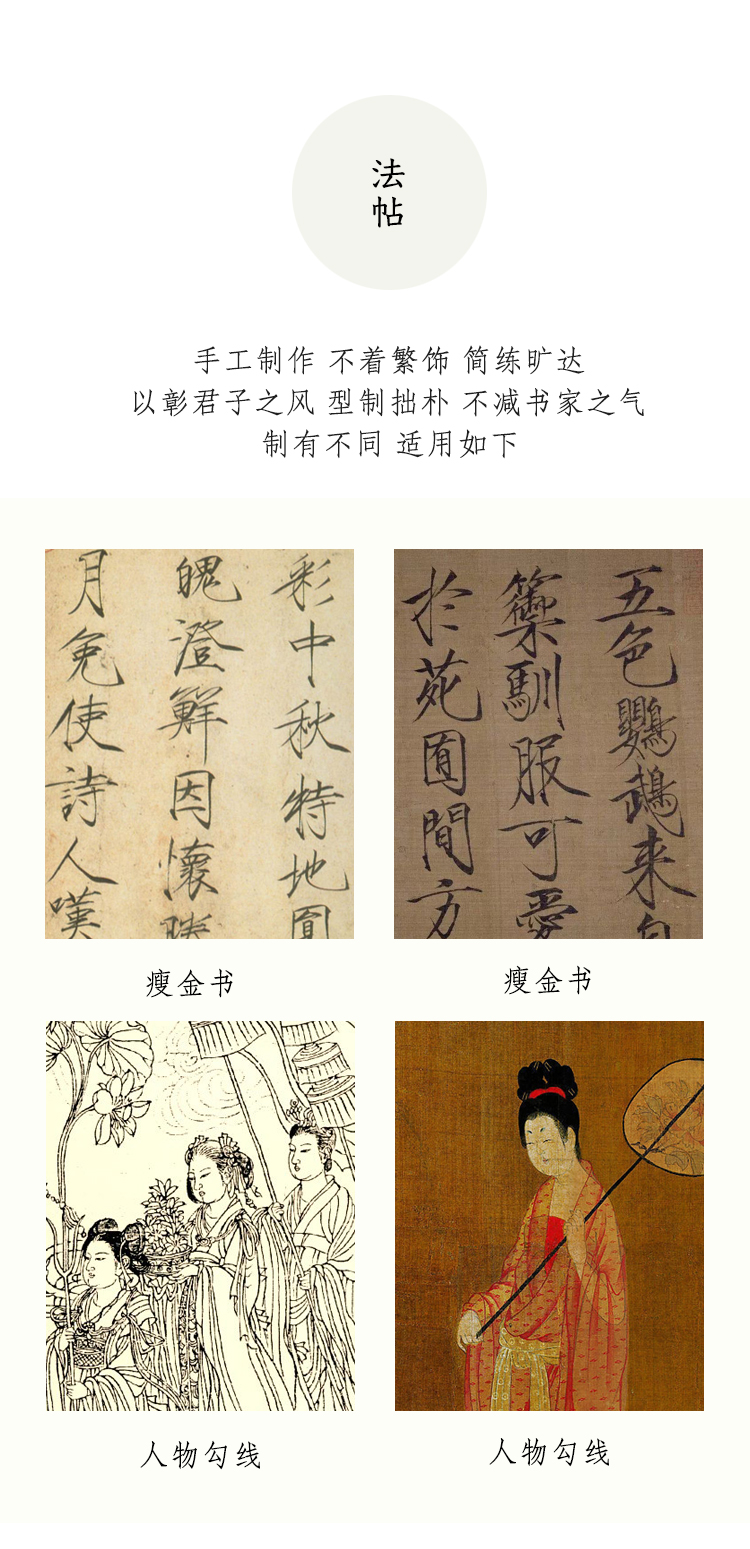 法
帖
手工制作 不着繁饰 简练旷达
以彰君子之风 型制拙朴 不减书家之气
制有不同 适用如下
彩中秋特地圓
魄澄鮮因懷勝
月免使詩人嘆
五色鸚鵡来自
籞馴服可愛
於苑囿間方
瘦金书
瘦金书
人物勾线
人物勾线